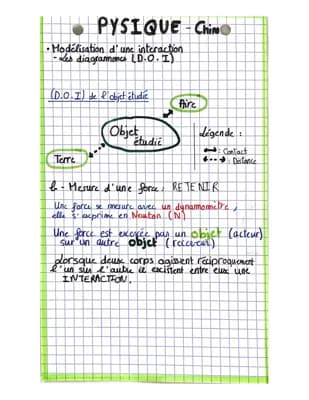 PYSIQUE - Chim
• Modélisation d'une interaction
- Les diagrammes (D.O.I)
(D.O.I) de l'objet étudié
Aire
Objet
étudié
Terre
légende :
: Contact
: Distance
b - Mesure d'une force : RETENIR
Une force se mesure avec un dynamomètre,
elle s'exprime en Newton (N)
Une force est exercée par un objet (acteur)
sur un autre objet (receveur)
Lorsque deux corps agissent réciproquement
l'un sur l'autre il existent entre eux une
INTERACTION.